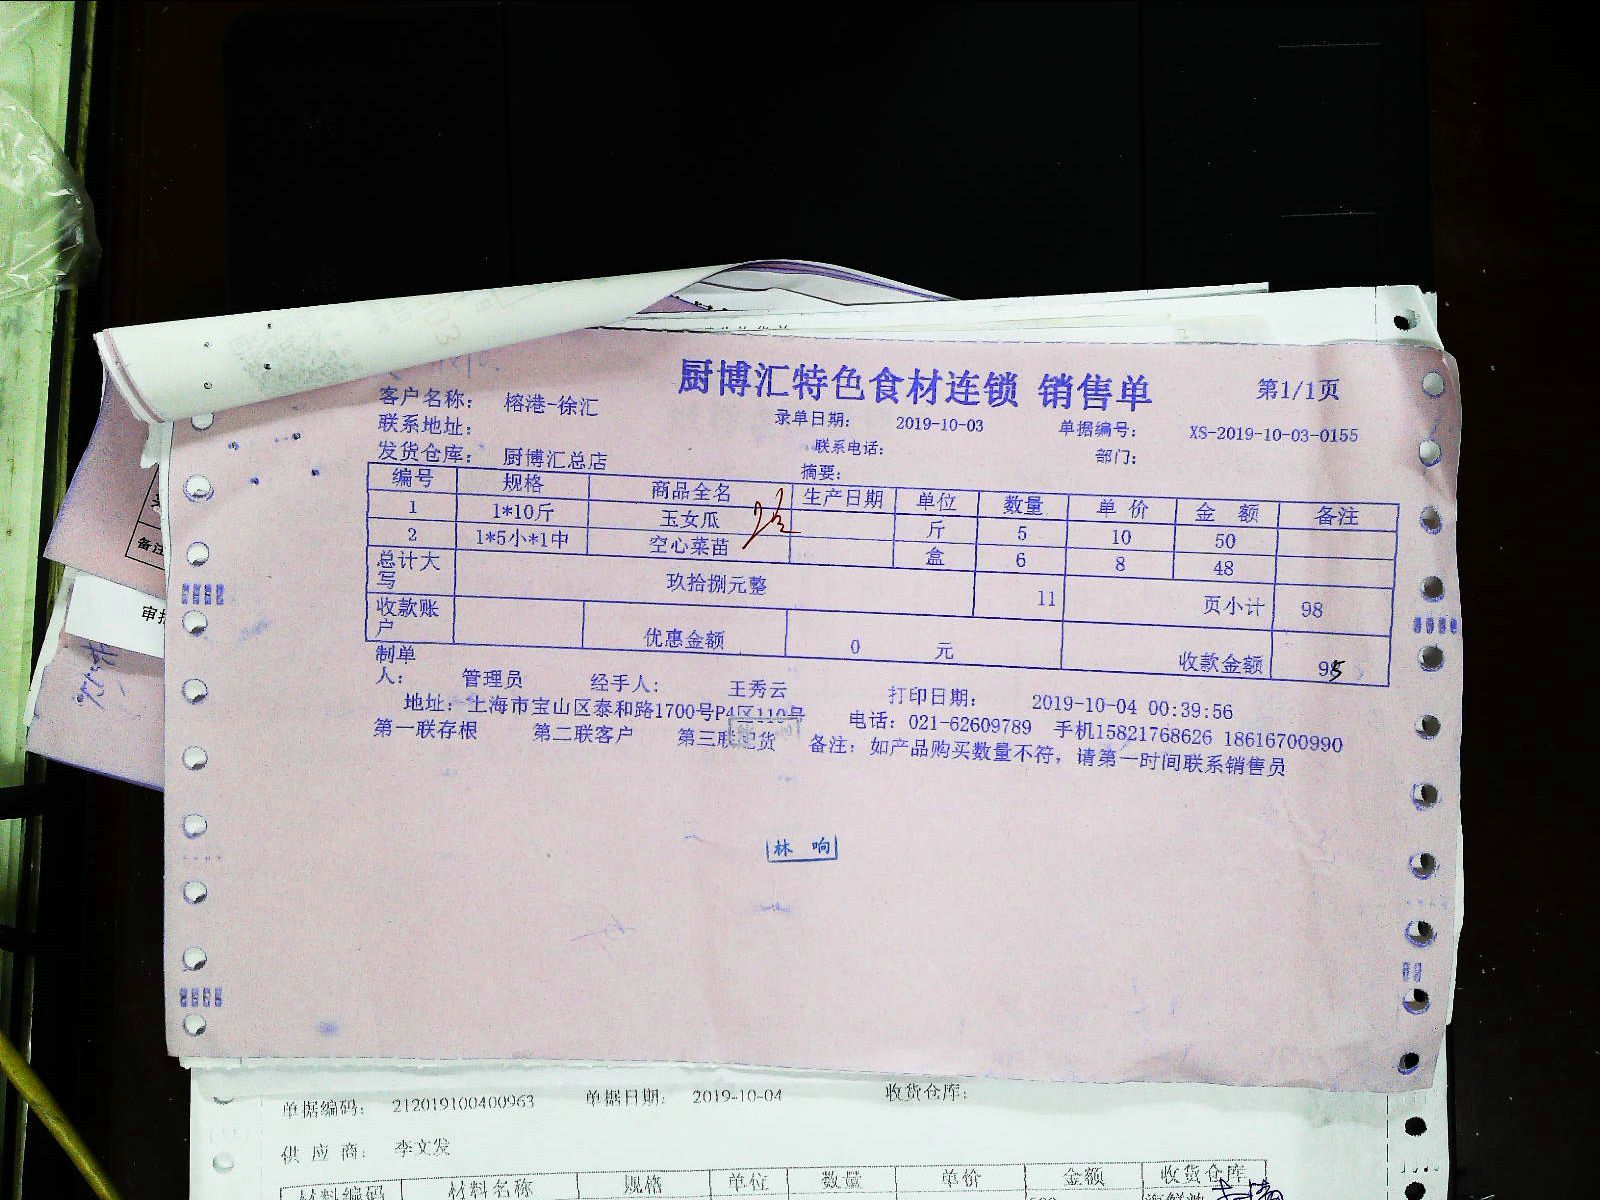 厨博汇特色食材连锁 销售单 第1/1页
客户名称: 榕港-徐汇 录单日期: 2019-10-03 单据编号: XS-2019-10-03-0155
联系地址: 联系电话: 部门:
发货仓库: 厨博汇总店 摘要:
编号 规格 商品全名 生产日期 单位 数量 单价 金额 备注
1 1*10斤 玉女瓜 斤 5 10 50
2 1*5小*1中 空心菜苗 盒 6 8 48
总计大写 玖拾捌元整 11 页小计 98
收款账户 优惠金额 0 元 收款金额
制单人: 管理员 经手人: 王秀云 打印日期: 2019-10-04 00:39:56
地址: 上海市宝山区泰和路1700号P4区110号 电话: 021-62609789 手机15821768626 18616700990
第一联存根 第二联客户 第三联配货 备注: 如产品购买数量不符,请第一时间联系销售员
林 响
备注
审
单据编码: 212019100400963 单据日期: 2019-10-04 收货仓库:
供应商: 李文发
材料编码 材料名称 规格 单位 数量 单价 金额 收货仓库